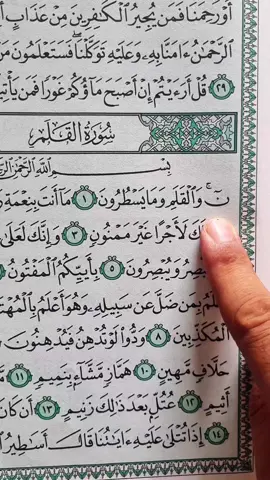 أَوْ رَحِمَنَا فَمَن يُجِيرُ الْكَافِرِينَ مِنْ عَذَابٍ
الرَّحْمَٰنُ ءَامَنَّا بِهِۦ وَعَلَيْهِ تَوَكَّلْنَا ۖ فَسَتَعْلَمُونَ مَنْ
٢٩ قُلْ أَرَءَيْتُمْ إِنْ أَصْبَحَ مَاؤُكُمْ غَوْرًا فَمَن يَأْتِي
سُورَةُ الْقَلَمِ
بِسْمِ اللَّهِ الرَّحْمَٰنِ الرَّ
نٓ ۚ وَالْقَلَمِ وَمَا يَسْطُرُونَ ١ مَا أَنتَ بِنِعْمَةِ رَ
لَكَ لَأَجْرًا غَيْرَ مَمْنُونٍ ٣ وَإِنَّكَ لَعَلَىٰ
بْصِرُ وَيُبْصِرُونَ ٥ بِأَييِّكُمُ الْمَفْتُونُ
عْلَمُ بِمَن ضَلَّ عَن سَبِيلِهِۦ وَهُوَ أَعْلَمُ بِالْمُهْتَ
الْمُكَذِّبِينَ ٨ وَدُّوا لَوْ تُدْهِنُ فَيُدْهِنُونَ
حَلَّافٍ مَّهِينٍ ١٠ هَمَّازٍ مَّشَّاءٍ بِنَمِيمٍ ١١
أَثِيمٍ ١٢ عُتُلٍّ بَعْدَ ذَٰلِكَ زَنِيمٍ ١٣ أَن كَانَ
١٤ إِذَا تُتْلَىٰ عَلَيْهِ ءَايَاتُنَا قَالَ أَسَاطِيرُ